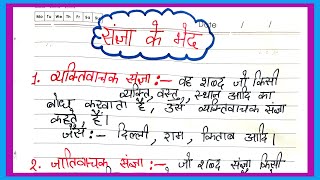 Mo Tu We Th Fr Sa Su
Date
संज्ञा के भेद
1. व्यक्तिवाचक संज्ञा :- वह शब्द जो किसी
व्यक्ति, वस्तु, स्थान आदि का
बोध करवाता है, उसे व्यक्तिवाचक संज्ञा
कहते हैं।
जैसे :- दिल्ली, राम, किताब आदि।
2. जातिवाचक संज्ञा :- जो शब्द संज्ञा, किसी